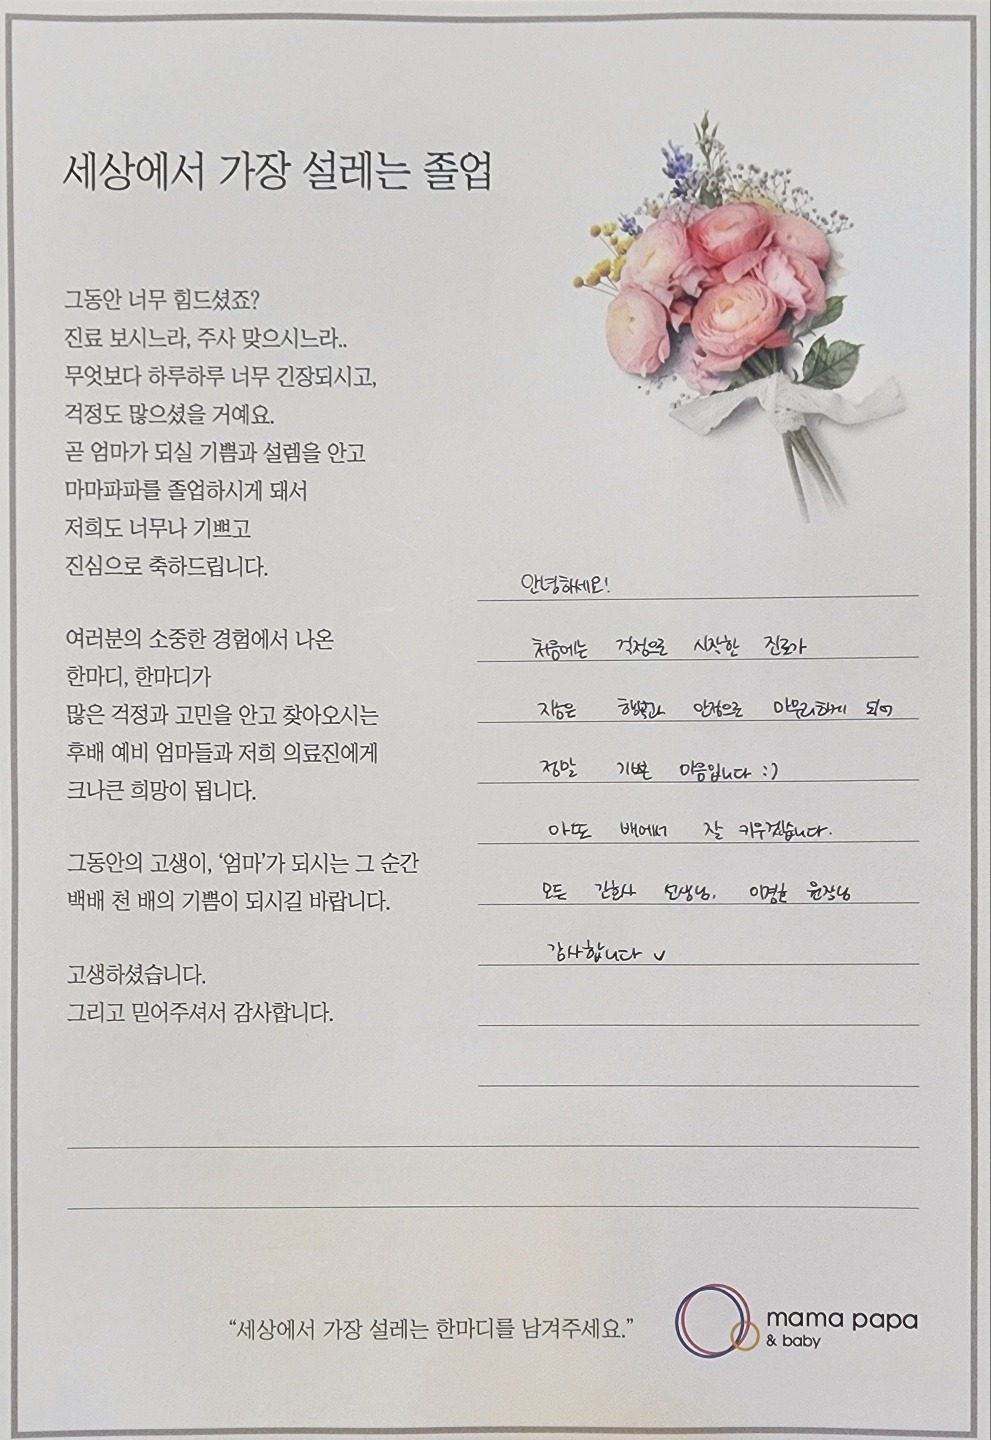 세상에서 가장 설레는 졸업
그동안 너무 힘드셨죠?
진료 보시느라, 주사 맞으시느라..
무엇보다 하루하루 너무 긴장되시고,
걱정도 많으셨을 거예요.
곧 엄마가 되실 기쁨과 설렘을 안고
마마파파를 졸업하시게 돼서
저희도 너무나 기쁘고
진심으로 축하드립니다.
여러분의 소중한 경험에서 나온
한마디, 한마디가
많은 걱정과 고민을 안고 찾아오시는
후배 예비 엄마들과 저희 의료진에게
크나큰 희망이 됩니다.
그동안의 고생이, ‘엄마’가 되시는 그 순간
백배 천 배의 기쁨이 되시길 바랍니다.
고생하셨습니다.
그리고 믿어주셔서 감사합니다.
안녕하세요!
처음에는 걱정으로 시작한 진료가
지금은 행복과 안정으로 마무리하게 되어
정말 기쁜 마음입니다 :)
배에서 잘 키우겠습니다.
모든 간호사 선생님, 원장님
감사합니다
“세상에서 가장 설레는 한마디를 남겨주세요.”
mama papa
& baby